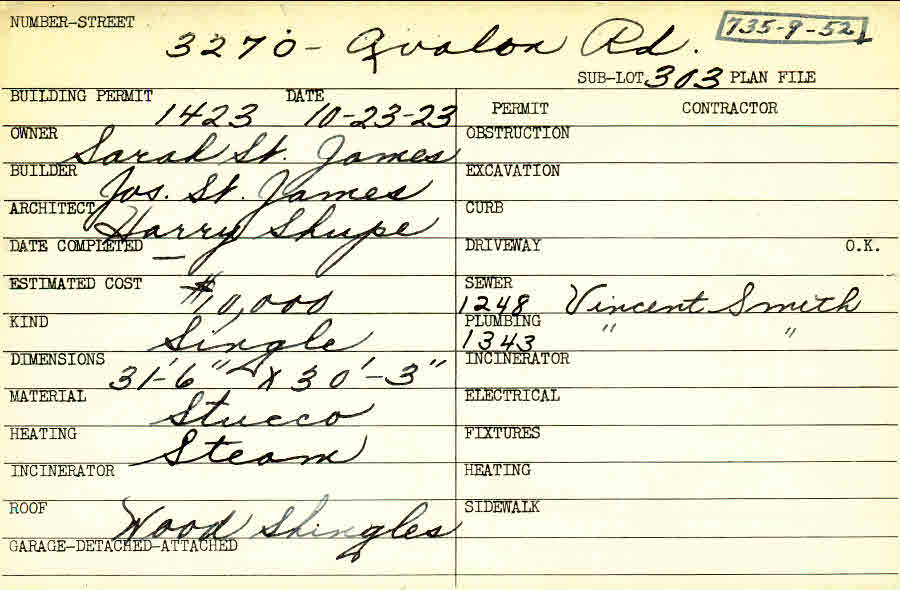 NUMBER-STREET
3270 - Avalon Rd.
735-9-52
SUB-LOT 303 PLAN FILE
BUILDING PERMIT DATE
1423 10-23-23
PERMIT CONTRACTOR
OWNER Sarah St. James
OBSTRUCTION
BUILDER Jos. St. James
EXCAVATION
ARCHITECT Harry Shupe
CURB
DATE COMPLETED —
DRIVEWAY O.K.
ESTIMATED COST $10,000
SEWER
1248 Vincent Smith
KIND Single
PLUMBING
1343 " "
DIMENSIONS 31'-6" x 30'-3"
INCINERATOR
MATERIAL Stucco
ELECTRICAL
HEATING Steam
FIXTURES
INCINERATOR
HEATING
ROOF Wood Shingles
SIDEWALK
GARAGE-DETACHED-ATTACHED